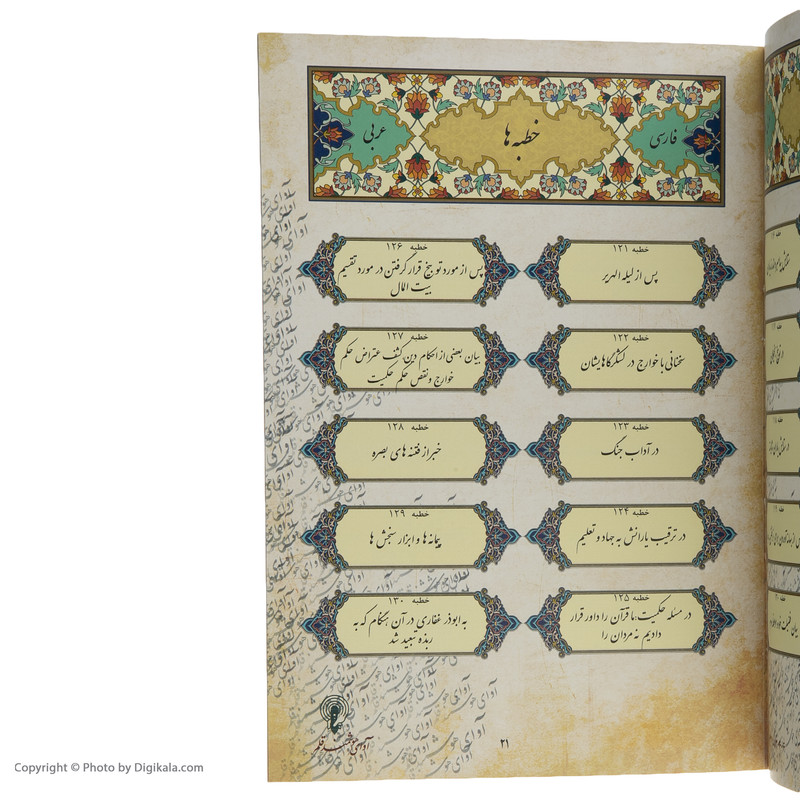 فارسی
خطبه ها
عربی
خطبه ۱۲۱
پس از لیله الهریر
خطبه ۱۲۲
سخنانی با خوارج در لشکرگاهایشان
خطبه ۱۲۳
در آداب جنگ
خطبه ۱۲۴
در ترقیب یارانش به جهاد و تعلیم
خطبه ۱۲۵
در مسئله حکمیت،ما قرآن را داور قرار
دادیم نه مردان را
خطبه ۱۲۶
پس از مورد توبیخ قرار گرفتن در مورد تقسیم
بیت المال
خطبه ۱۲۷
بیان بعضی از احکام دین کشف عتراض حکم
خوارج و نقص حکم حکمیت
خطبه ۱۲۸
خبر از فتنه های بصره
خطبه ۱۲۹
پیمانه ها و ابزار سنجش ها
خطبه ۱۳۰
به ابوذر غفاری در آن هنگام که به
ربذه تبعید شد
۲۱
Copyright © Photo by Digikala.com